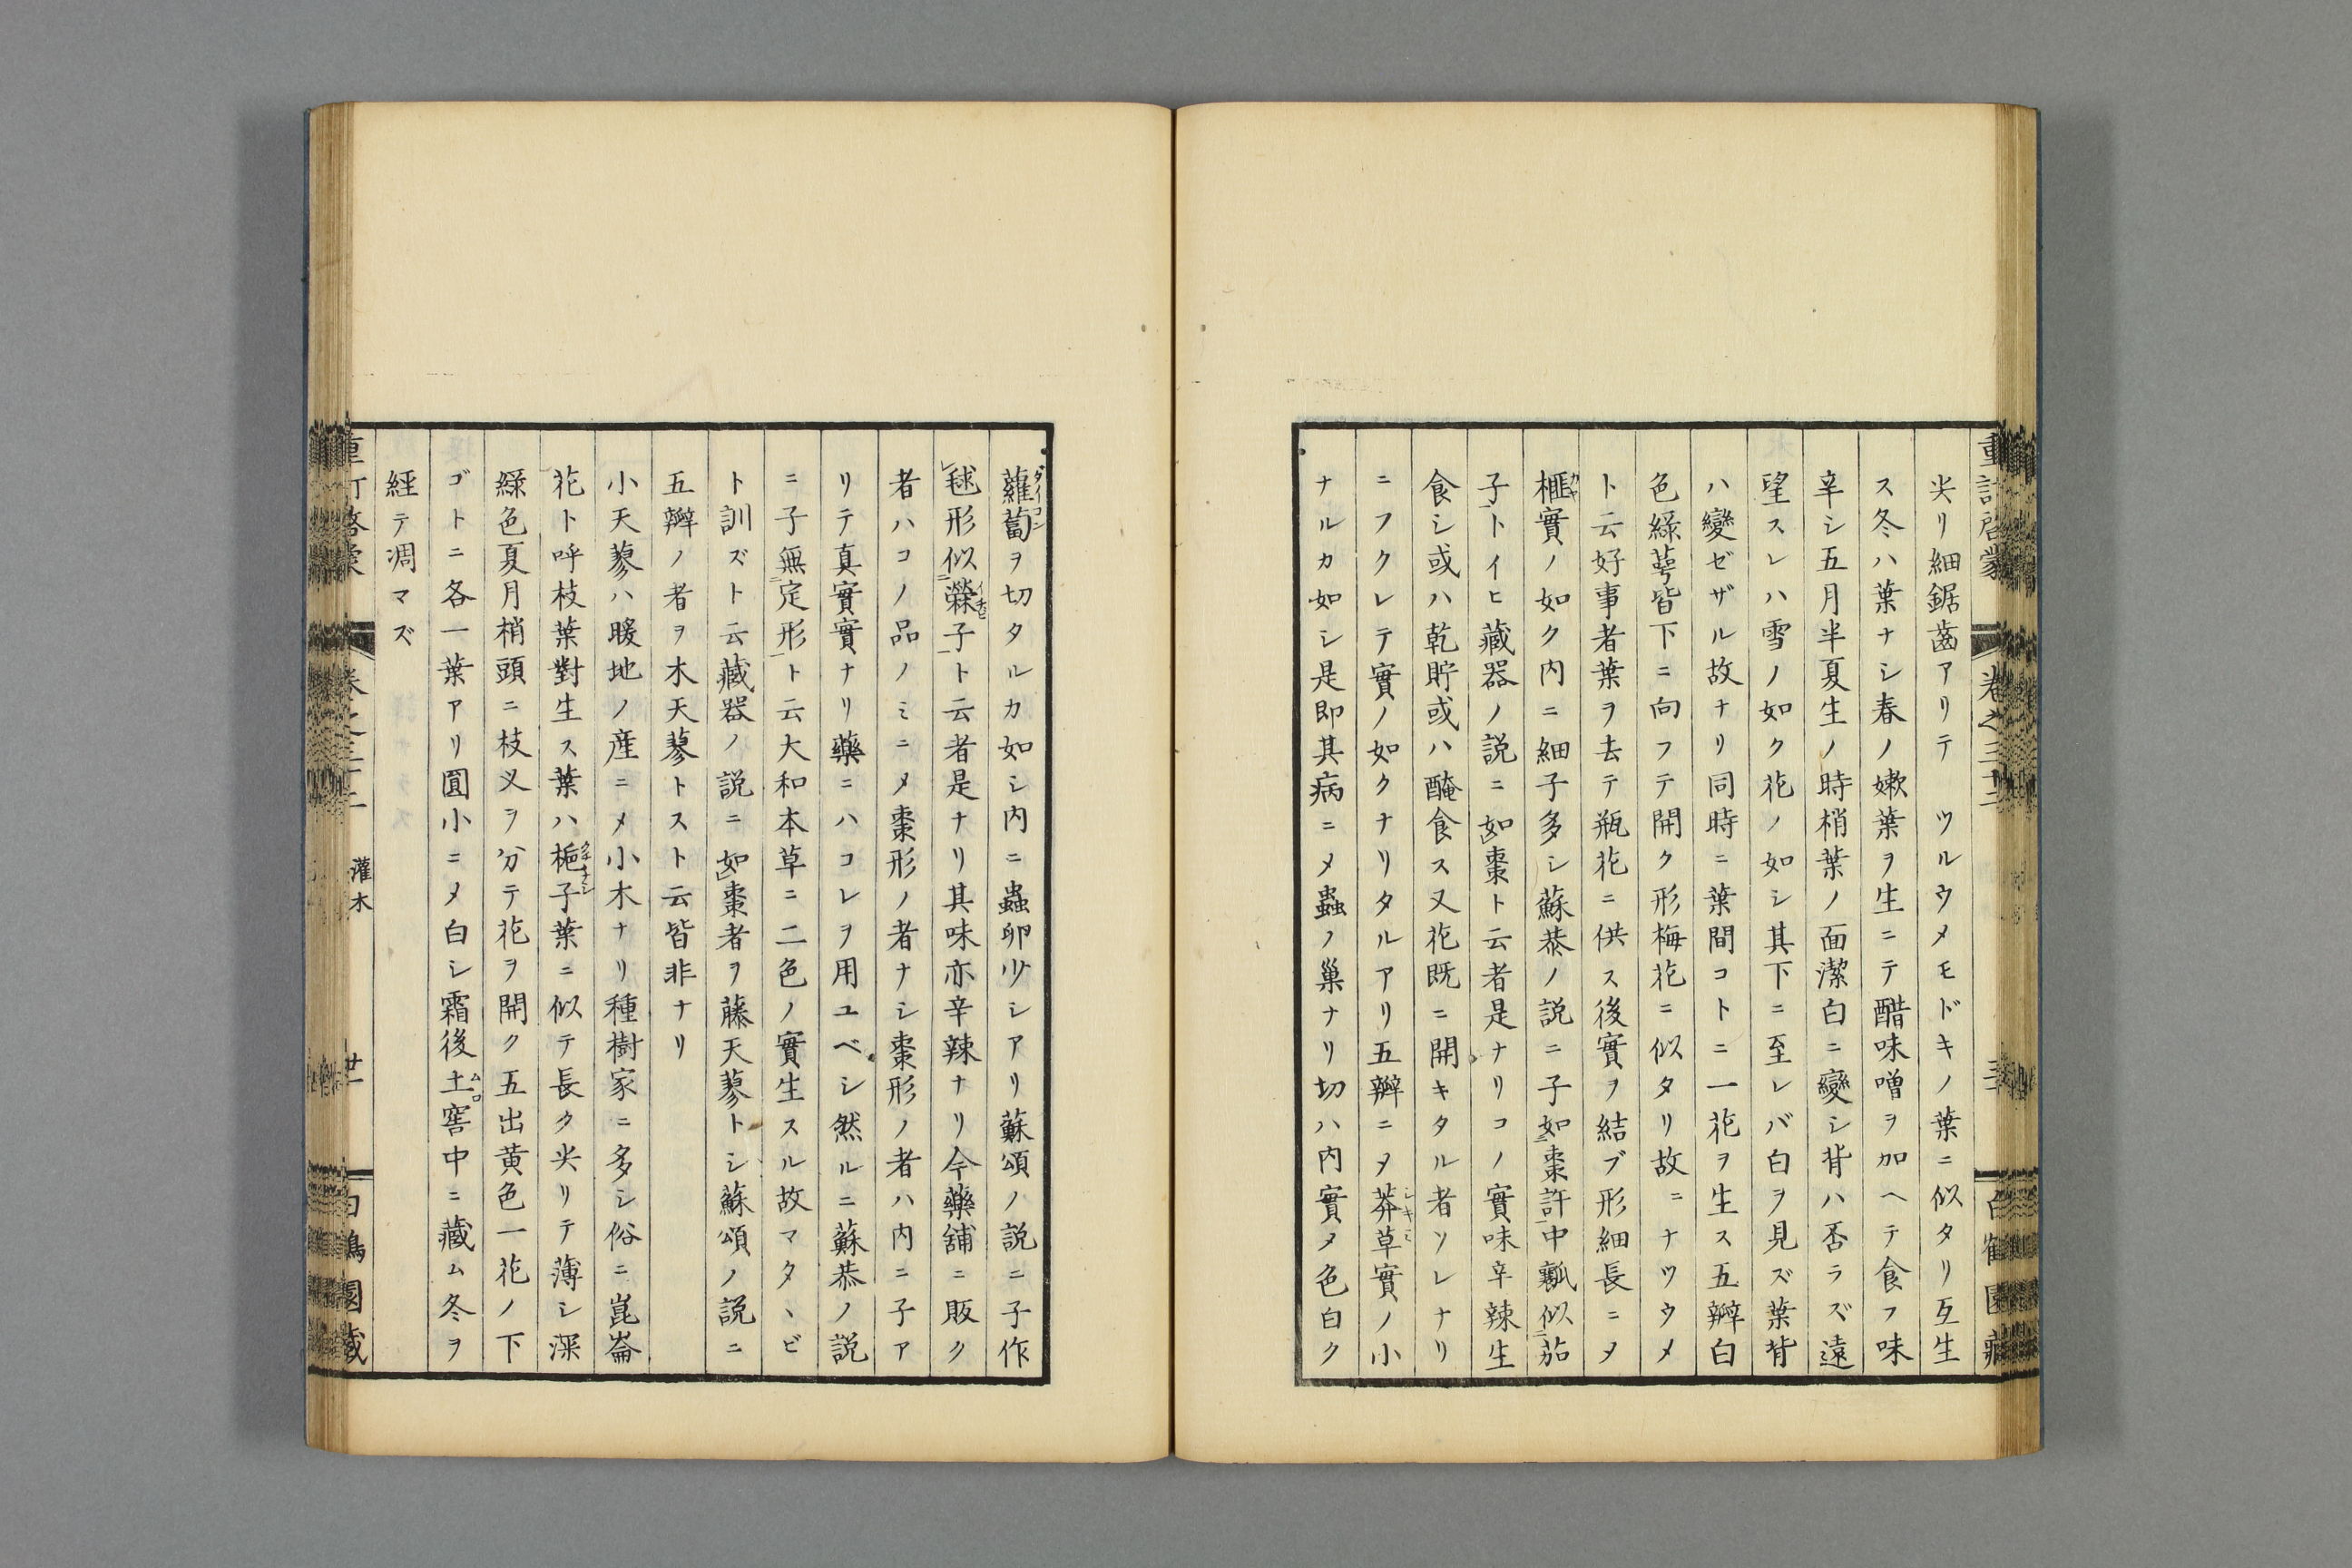 尖リ細鋸齒アリテ　ツルウメモドキノ葉ニ似タリ互生
ス冬ハ葉ナシ春ノ嫩葉ヲ生ニテ醋味噌ヲ加ヘテ食フ味
辛シ五月半夏生ノ時梢葉ノ面潔白ニ變シ背ハ否ラズ遠
望スレハ雪ノ如ク花ノ如シ其下ニ至レバ白ヲ見ズ葉背
ハ變ゼザル故ナリ同時ニ葉間コトニ一花ヲ生ス五瓣白
色綠萼皆下ニ向フテ開ク形梅花ニ似タリ故ニナツウメ
ト云好事者葉ヲ去テ瓶花ニ供ス後實ヲ結ブ形細長ニメ
榧實ノ如ク内ニ細子多シ蘇恭ノ説ニ子如棗許中瓤似茄
子トイヒ藏器ノ説ニ如棗ト云者是ナリコノ實味辛辣生
食シ或ハ乾貯或ハ醃食ス又花既ニ開キタル者ソレナリ
ニフクレテ實ノ如クナリタルアリ五瓣ニヲ莽草實ノ小
シキミ
ナルカ如シ是即其病ニメ蟲ノ巢ナリ切ハ内實メ色白ク
重訂啓蒙　卷之三十二
蘿蔔ヲ切タルカ如シ内ニ蟲卵少シアリ蘇頌ノ説ニ子作
ダイコン
毬形似蘃子ト云者是ナリ其味亦辛辣ナリ今藥舖ニ販ク
者ハコノ品ノミニメ棗形ノ者ナシ棗形ノ者ハ内ニ子ア
リテ真實實ナリ藥ニハコレヲ用ユベシ然ルニ蘇恭ノ説
ニ子無定形ト云大和本草ニ二色ノ實生スル故マタヽビ
ト訓ズト云藏器ノ説ニ如棗者ヲ藤天蓼トシ蘇頌ノ説ニ
五瓣ノ者ヲ木天蓼トスト云皆非ナリ
小天蓼ハ暖地ノ産ニメ小木ナリ種樹家ニ多シ俗ニ崑崙
花ト呼枝葉對生ス葉ハ梔子葉ニ似テ長ク尖リテ薄シ深
クチナシ
綠色夏月梢頭ニ枝叉ヲ分テ花ヲ開ク五出黄色一花ノ下
ゴトニ各一葉アリ圓小ニメ白シ霜後土窖中ニ藏ム冬ヲ
ムロ
經テ凋マズ
灌木